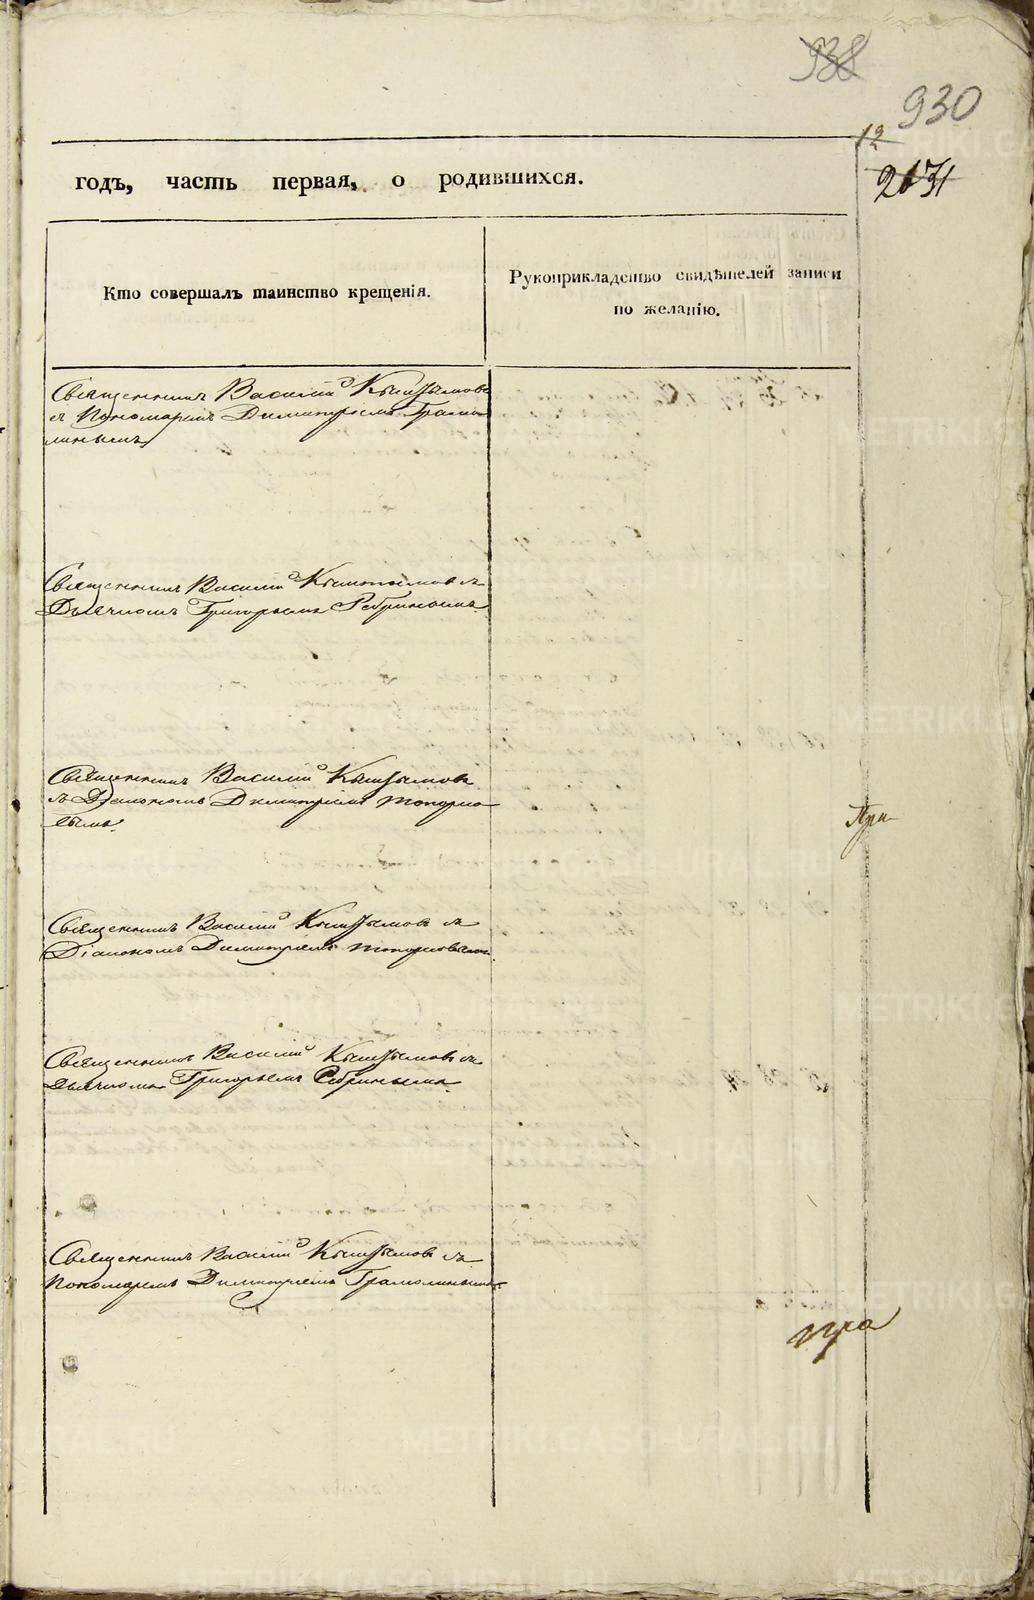 938
930
12
годъ, часть первая, о родившихся.
Кто совершалъ таинство крещенія.
Рукоприкладство свидѣтелей записи
по желанію.
Священникъ Василій Кыштымовъ
съ Пономаремъ Димитріемъ Грамо-
линымъ
Священникъ Василій Кыштымовъ съ
Дьячкомъ Григорьемъ Ребринымъ
Священникъ Василій Кыштымовъ
съ Діакономъ Димитріемъ Топорко-
вымъ.
Пра-
Священникъ Василій Кыштымовъ съ
Діакономъ Димитріемъ Топорковымъ.
Священникъ Василій Кыштымовъ съ
Дьячкомъ Григорьемъ Ребринымъ.
Священникъ Василій Кыштымовъ съ
Пономаремъ Димитріемъ Грамолинымъ
METRIKI.GASO-URAL.RU